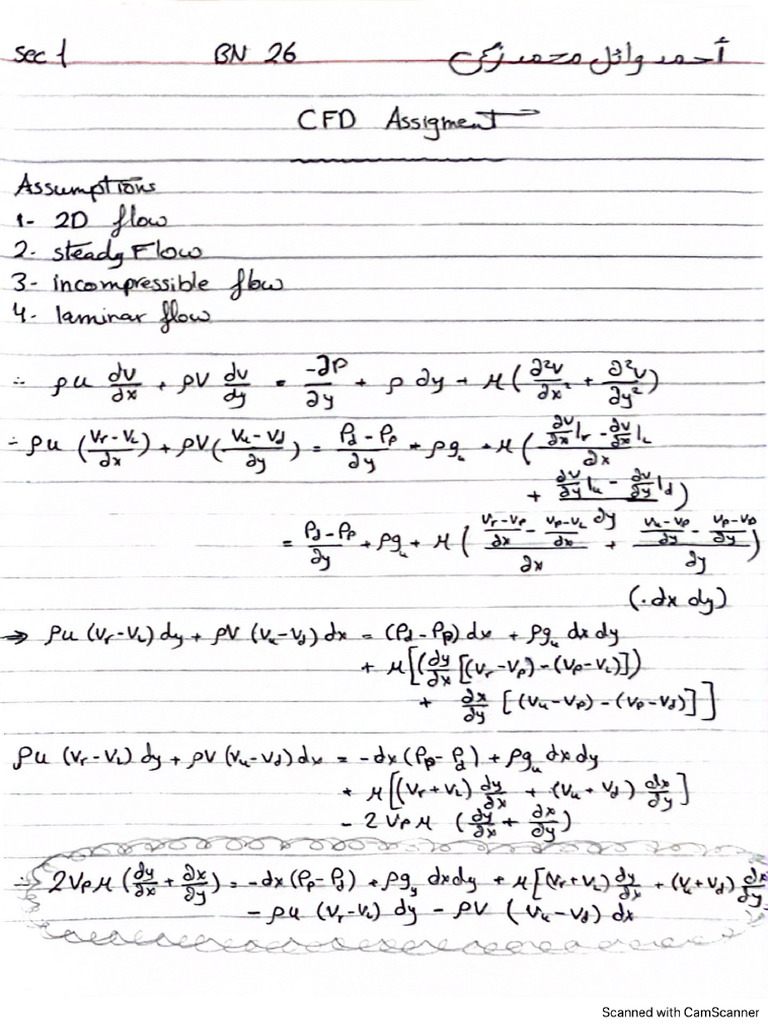 sec 1 BN 26 أحمد وائل محمد زكي
CFD Assigment
Assumptions
1- 2D flow
2- steady Flow
3- incompressible flow
4- laminar flow
∴ ρu dv/dx + ρv dv/dy = -∂P/∂y + ρ ∂y + μ(∂²v/∂x² + ∂²v/∂y²)
∴ ρu (Vr-VL / ∂x) + ρv (Vu-Vd / ∂y) = Pd-Pp / ∂y + ρgy + μ( (∂v/∂x|r - ∂v/∂x|L) / ∂x
+ ∂v/∂y|u - ∂v/∂y|d )
= Pd-Pp / ∂y + ρgy + μ( (Vr-Vp / ∂x - Vp-VL / ∂x) / ∂x + (Vu-Vp / ∂y - Vp-VD / ∂y) / ∂y )
(. dx dy)
⇒ ρu (Vr-VL) dy + ρv (Vu-Vd) dx = (Pd-Pp) dx + ρgy dx dy
+ μ[(∂y/∂x [(Vr-Vp)-(Vp-VL)])
+ ∂x/∂y [(Vu-Vp)-(Vp-Vd)]]
ρu (Vr-VL) dy + ρv (Vu-Vd) dx = -dx (Pp-Pd) + ρgy dx dy
+ μ[(Vr+VL) dy/∂x + (Vu+Vd) dx/∂y]
- 2 Vp μ (∂y/∂x + ∂x/∂y)
∴ 2Vp μ (∂y/∂x + ∂x/∂y) = -dx (Pp-Pd) + ρgy dx dy + μ[(Vr+VL) dy/∂x + (Vu+Vd) dx/∂y
- ρu (Vr-VL) dy - ρv (Vu-Vd) dx
Scanned with CamScanner